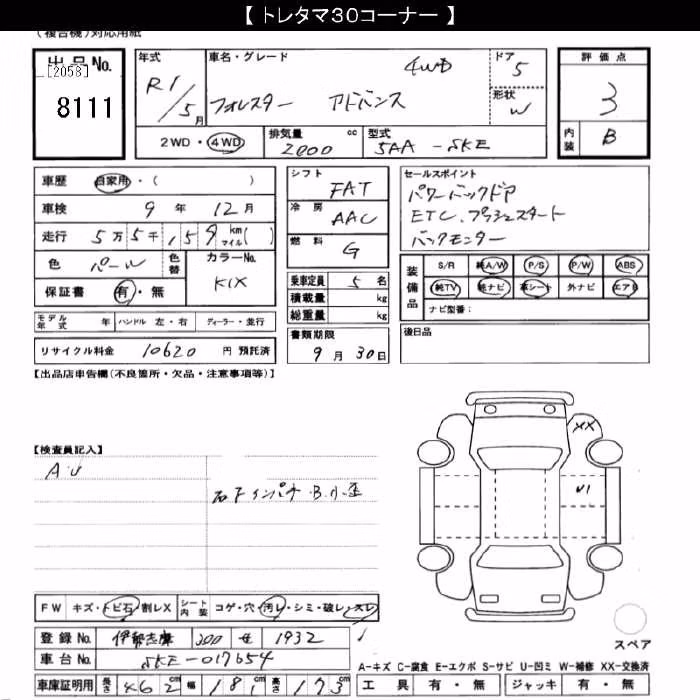 【 トレタマ30コーナー 】
(複合機)対応用紙
出品No.
[2058]
8111
年式
R1/5月
車名・グレード
フォレスター アドバンス 4WD
ドア 5
形状 W
評価点
3
内装 B
2WD・4WD
排気量 2000 cc
型式 5AA-SKE
車歴 自家用・( )
車検 9年 12月
走行 5万5千159km マイル( )
色 パール 色替
カラーNo. K1X
保証書 有・無
シフト FAT
冷房 AAC
燃料 G
セールスポイント
パワーバックドア
ETC.プッシュスタート
バックモニター
装備品
S/R 純A/W P/S P/W ABS
純TV 純ナビ 革シート 外ナビ エアB
ナビ型番:
乗車定員 5名
積載量 kg
総重量 kg
モデル年式 年 ハンドル 左・右 ディーラー・並行
リサイクル料金 10620 円 預託済
書類期限
9月30日
後日品
【出品店申告欄(不良箇所・欠品・注意事項等)】
【検査員記入】
A・U
右Fインパネ・B.小歪
XX
U1
FW キズ・トビ石・割レX
シート内装 コゲ・穴・汚レ・シミ・破レ・スレ
登録No. 伊勢志摩 300 せ 1932
車台No. SKE-017654
車庫証明用 長さ 462 幅 181 高さ 173
スペア
A-キズ C-腐食 E-エクボ S-サビ U-凹ミ W-補修 XX-交換済
工具 有・無 ジャッキ 有・無